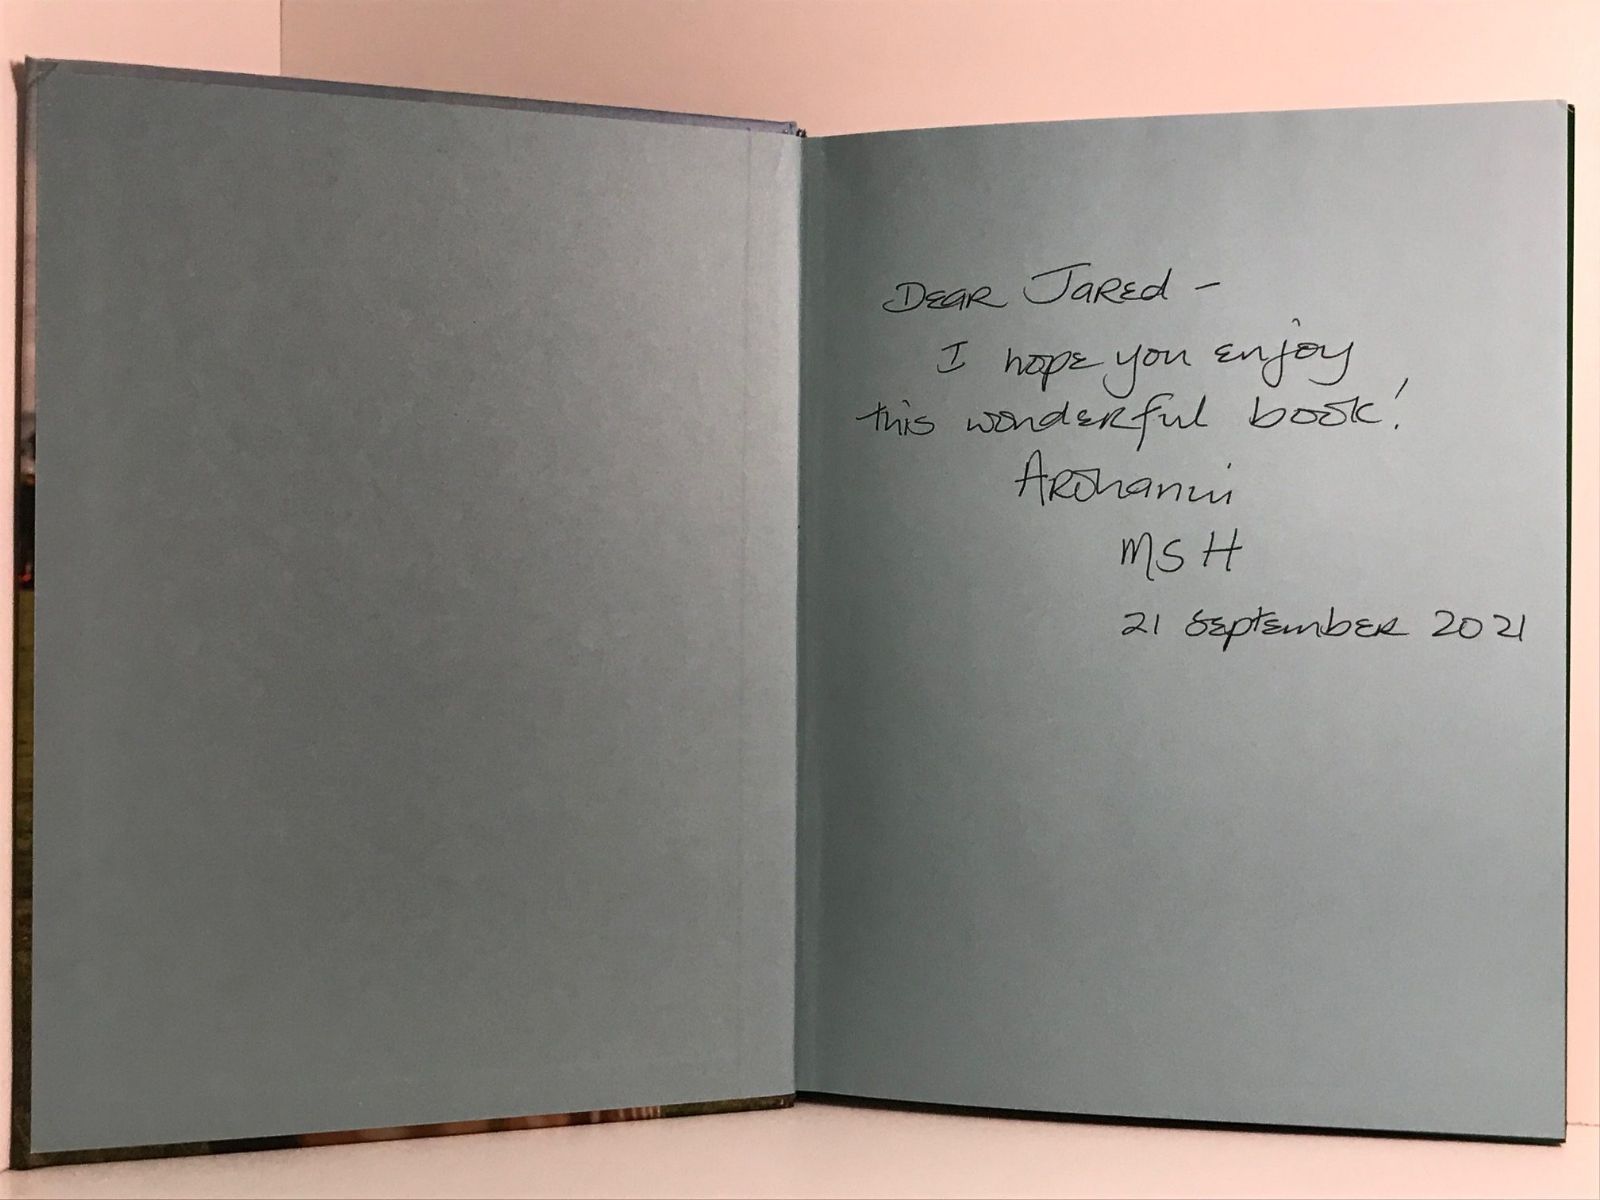 Dear Jared -
I hope you enjoy
this wonderful book!
Arohanui
MSH
21 September 2021